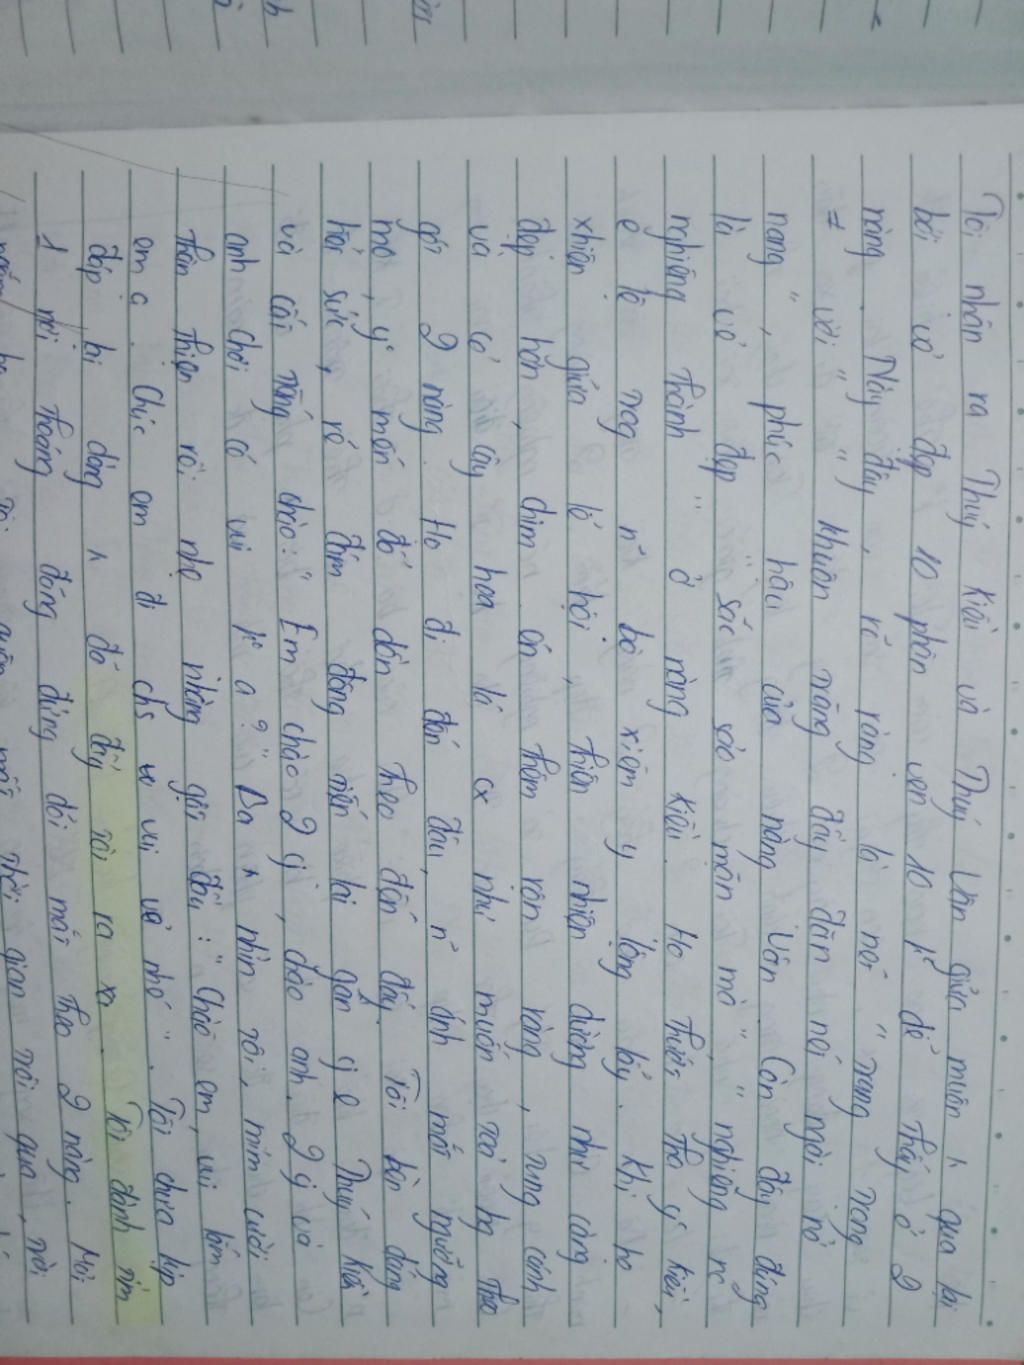 Tôi nhận ra Thuý Kiều và Thuý Vân giữa muôn qua lại
bởi vẻ đẹp 10 phân vẹn 10 dễ thấy ở 2
nàng. Này đây, rõ ràng là nói "trang trọng
≠ vời" khuôn trăng đầy đặn nét ngài nở
nang", phúc hậu của nàng Vân. Còn đây đúng
là vẻ đẹp "sắc sảo mặn mà", "nghiêng nc
nghiêng thành" ở nàng Kiều. Họ thướt tha yểu kiều,
e lệ trong bộ xiêm y lộng lẫy. Khi họ
xhiện giữa lễ hội, thiên nhiên dường như càng
đẹp hơn, chim én thêm rộn ràng, rung cánh
và cỏ cây hoa lá cx như muốn toả hg theo
gót 2 nàng. Họ đi đến đâu, ánh mắt ngưỡng
mộ, yêu mến đổ dồn theo đến đấy. Tôi bèn dùng
hết sức, rẽ đám đông tiến lại gần Thuý Kiều
và cất tiếng chào: "Em chào 2 , chào anh. 2 và
anh chơi có vui k a?" Ba nhìn tôi, mỉm cười
thân thiện rồi nhẹ nhàng gật đầu: "Chào em, vui lắm
em ạ. Chúc em đi chs vui vẻ nhé". Tôi chưa kịp
đáp lại dòng đó đẩy tôi ra xa. Tôi đành tìm
1 nơi thoáng đãng đứng dõi mắt theo 2 nàng. Mải
thời gian trôi qua, trời